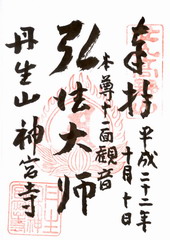 奉拝
平成二十二年
十月十日
本尊十一面観音
弘法大師
丹生山神宮寺